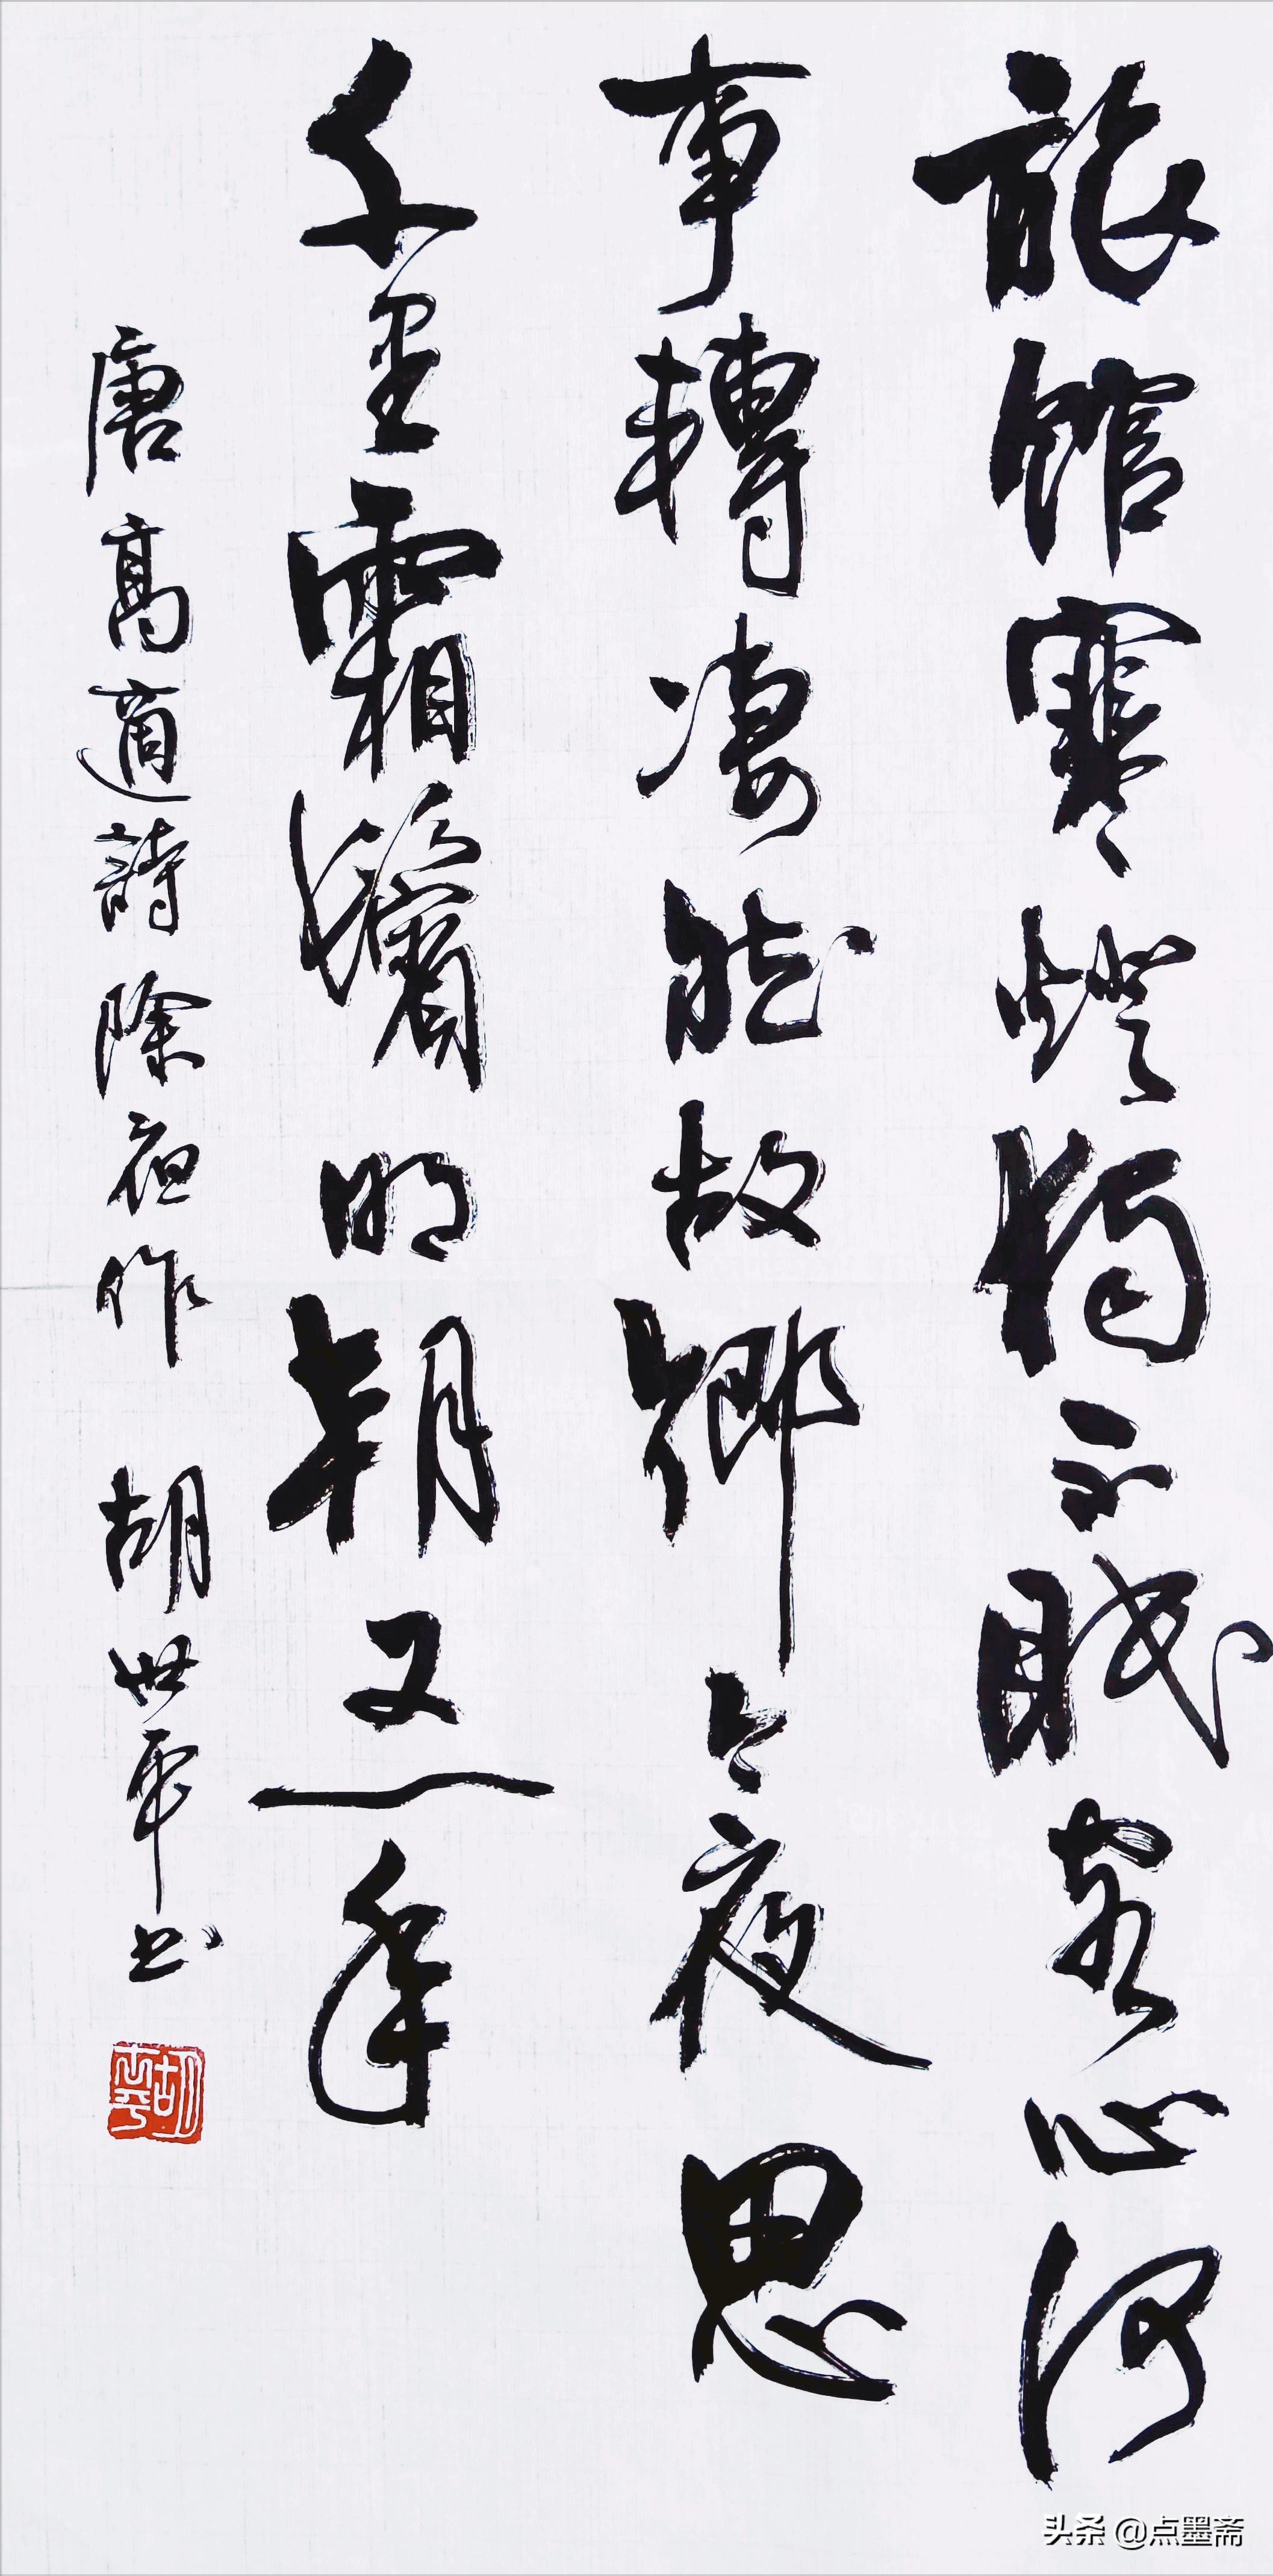 旅館寒燈獨不眠客心何
事轉凄然故鄉今夜思
千里霜鬢明朝又一年
唐高適詩除夜作 胡世平书
胡世平
头条 @点墨斋